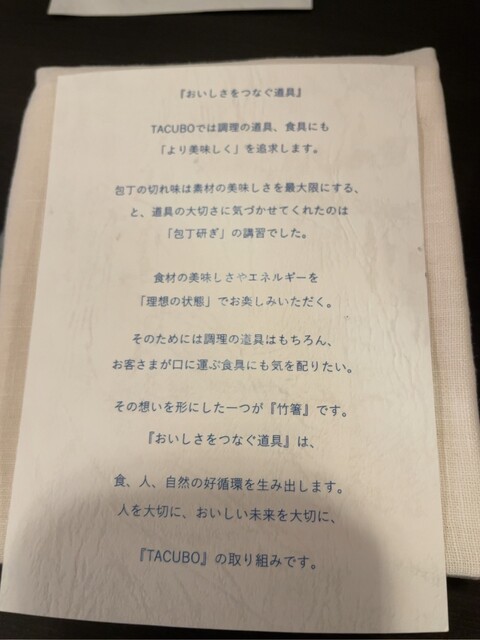 『おいしさをつなぐ道具』
TACUBOでは調理の道具、食具にも
「より美味しく」を追求します。
包丁の切れ味は素材の美味しさを最大限にする、
と、道具の大切さに気づかせてくれたのは
「包丁研ぎ」の講習でした。
食材の美味しさやエネルギーを
「理想の状態」でお楽しみいただく。
そのためには調理の道具はもちろん、
お客さまが口に運ぶ食具にも気を配りたい。
その想いを形にした一つが『竹箸』です。
『おいしさをつなぐ道具』は、
食、人、自然の好循環を生み出します。
人を大切に、おいしい未来を大切に、
『TACUBO』の取り組みです。